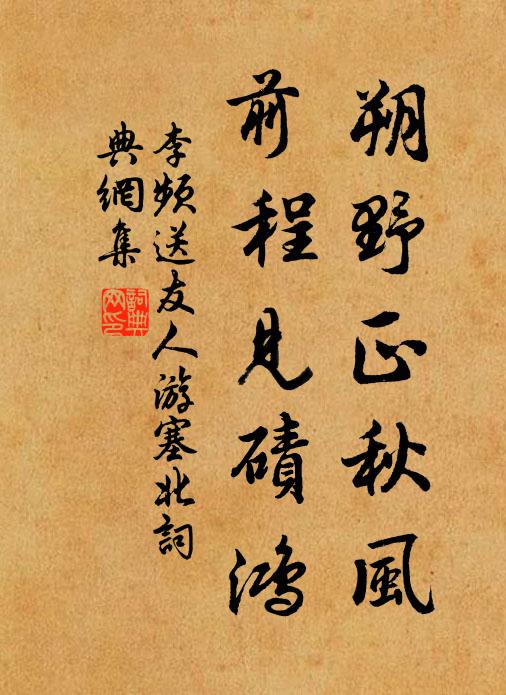 朔野正秋風
前程見磧鴻
李頻送友人游塞北詞
典網集
詞典
网印